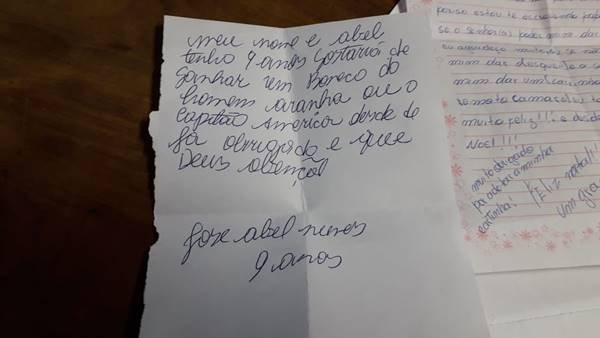 meu nome e abel
tenho 9 anos gostaria de
ganhar um Boneco do
homem aranha ou o
Capitão America desde de
ja obrigado e que
Deus abençol
Jose abel nunes
9 anos
estou te escrevendo
se o senhor(a) poder mim dar
eu agradeço muito
mim das
mim das um
muito feliz!!! e
Noel!!!
muito obrigado
pa adotar a minha
cartinha!
Feliz natal!!
um